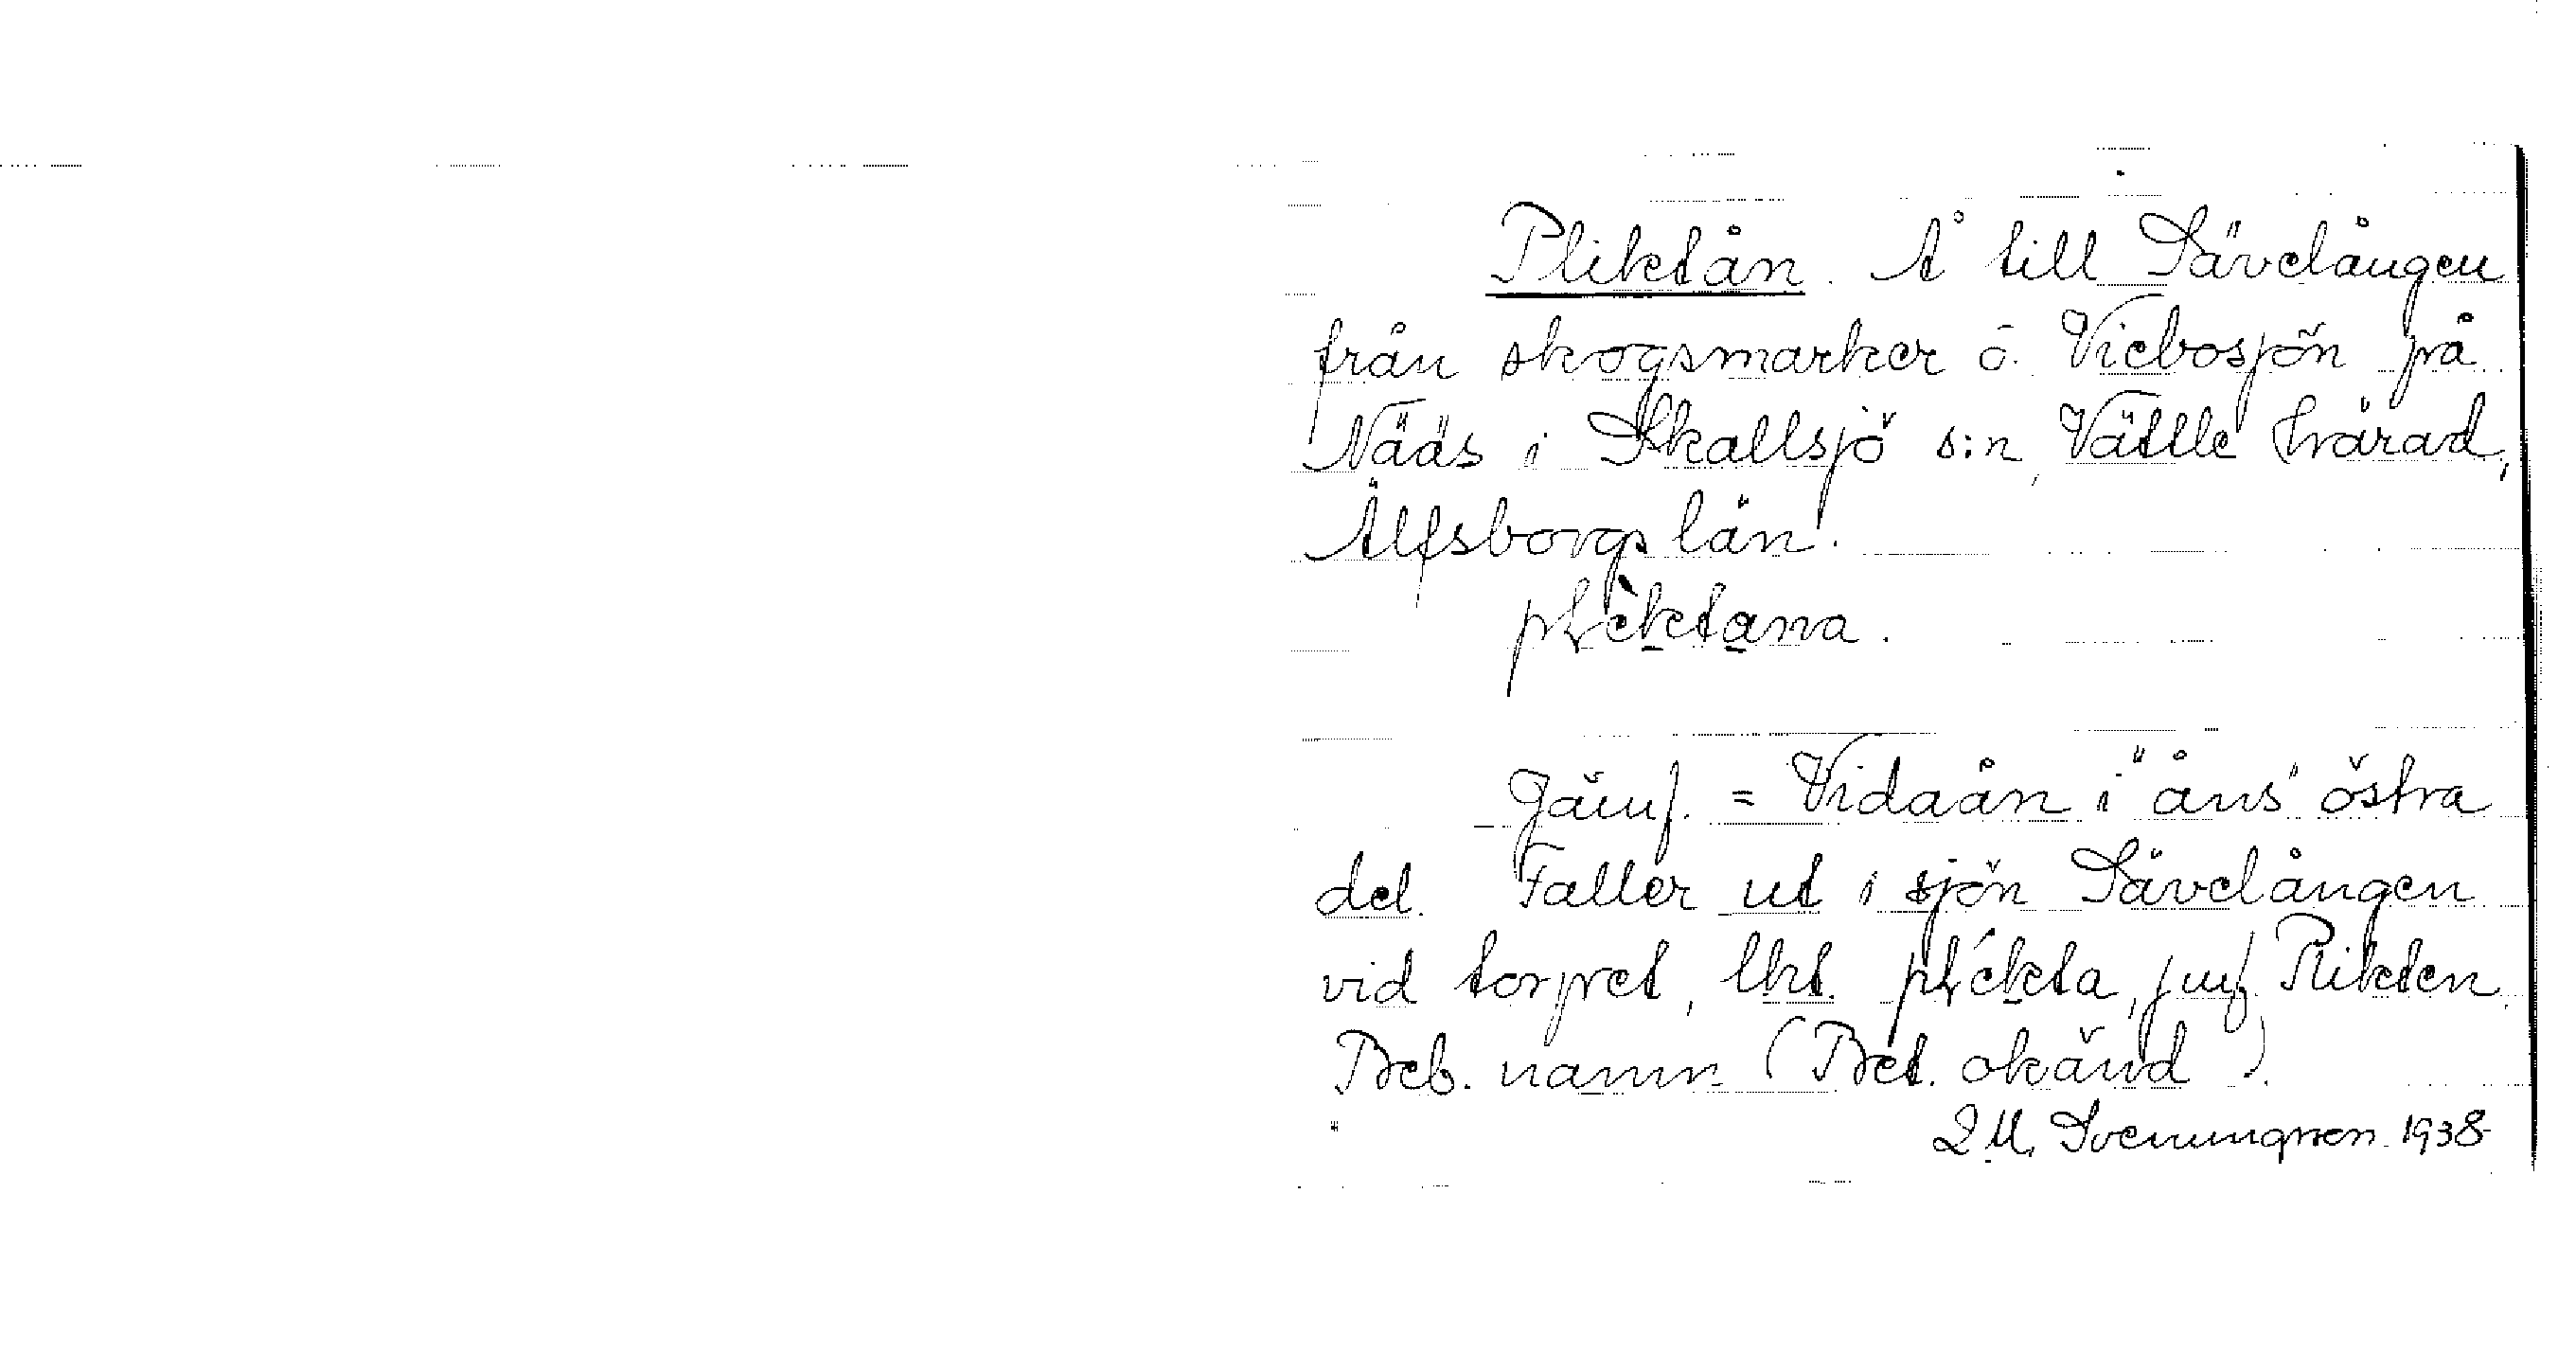 Pliktån. Å till Sävelången
från skogsmarker ö. Viebosjön på
Nääs i Skallsjö s:n, Vättle härad,
Älfsborgs län.
plèktana.
Jämf. = Vidaån i "åns" östra
del. Faller ut i sjön Sävelången
vid torpet, lkt. plékta, jmf. Plikten.
Beb. namn (Bet. okänd).
Svenungsson 1938